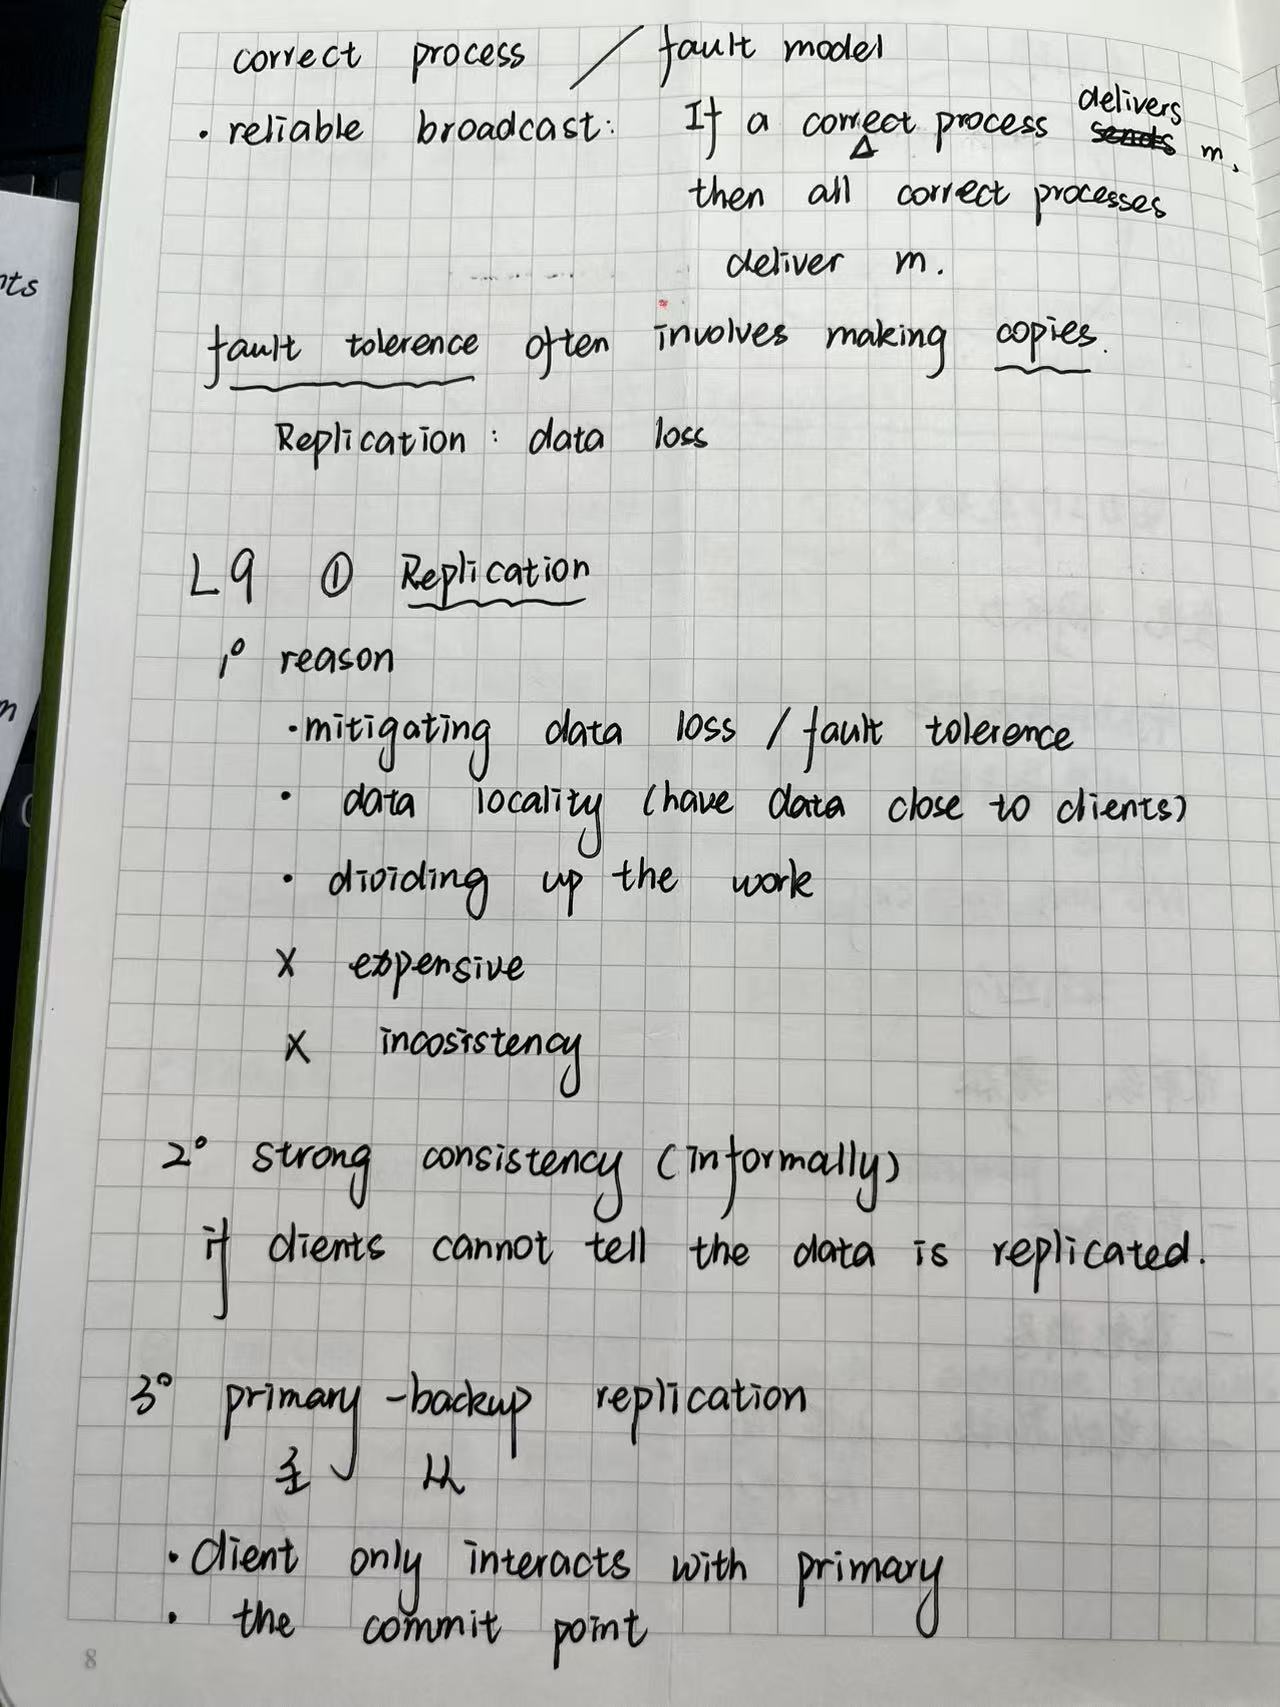 correct process / fault model
· reliable broadcast: If a correct process sends delivers m,
then all correct processes
deliver m.
fault tolerence often involves making copies.
Replication : data loss
L9 ① Replication
1° reason
· mitigating data loss / fault tolerence
· data locality (have data close to clients)
· dividing up the work
x expensive
x incosistency
2° strong consistency (informally)
if clients cannot tell the data is replicated.
3° primary-backup replication
主 从
· Client only interacts with primary
· the commit point
8
nts